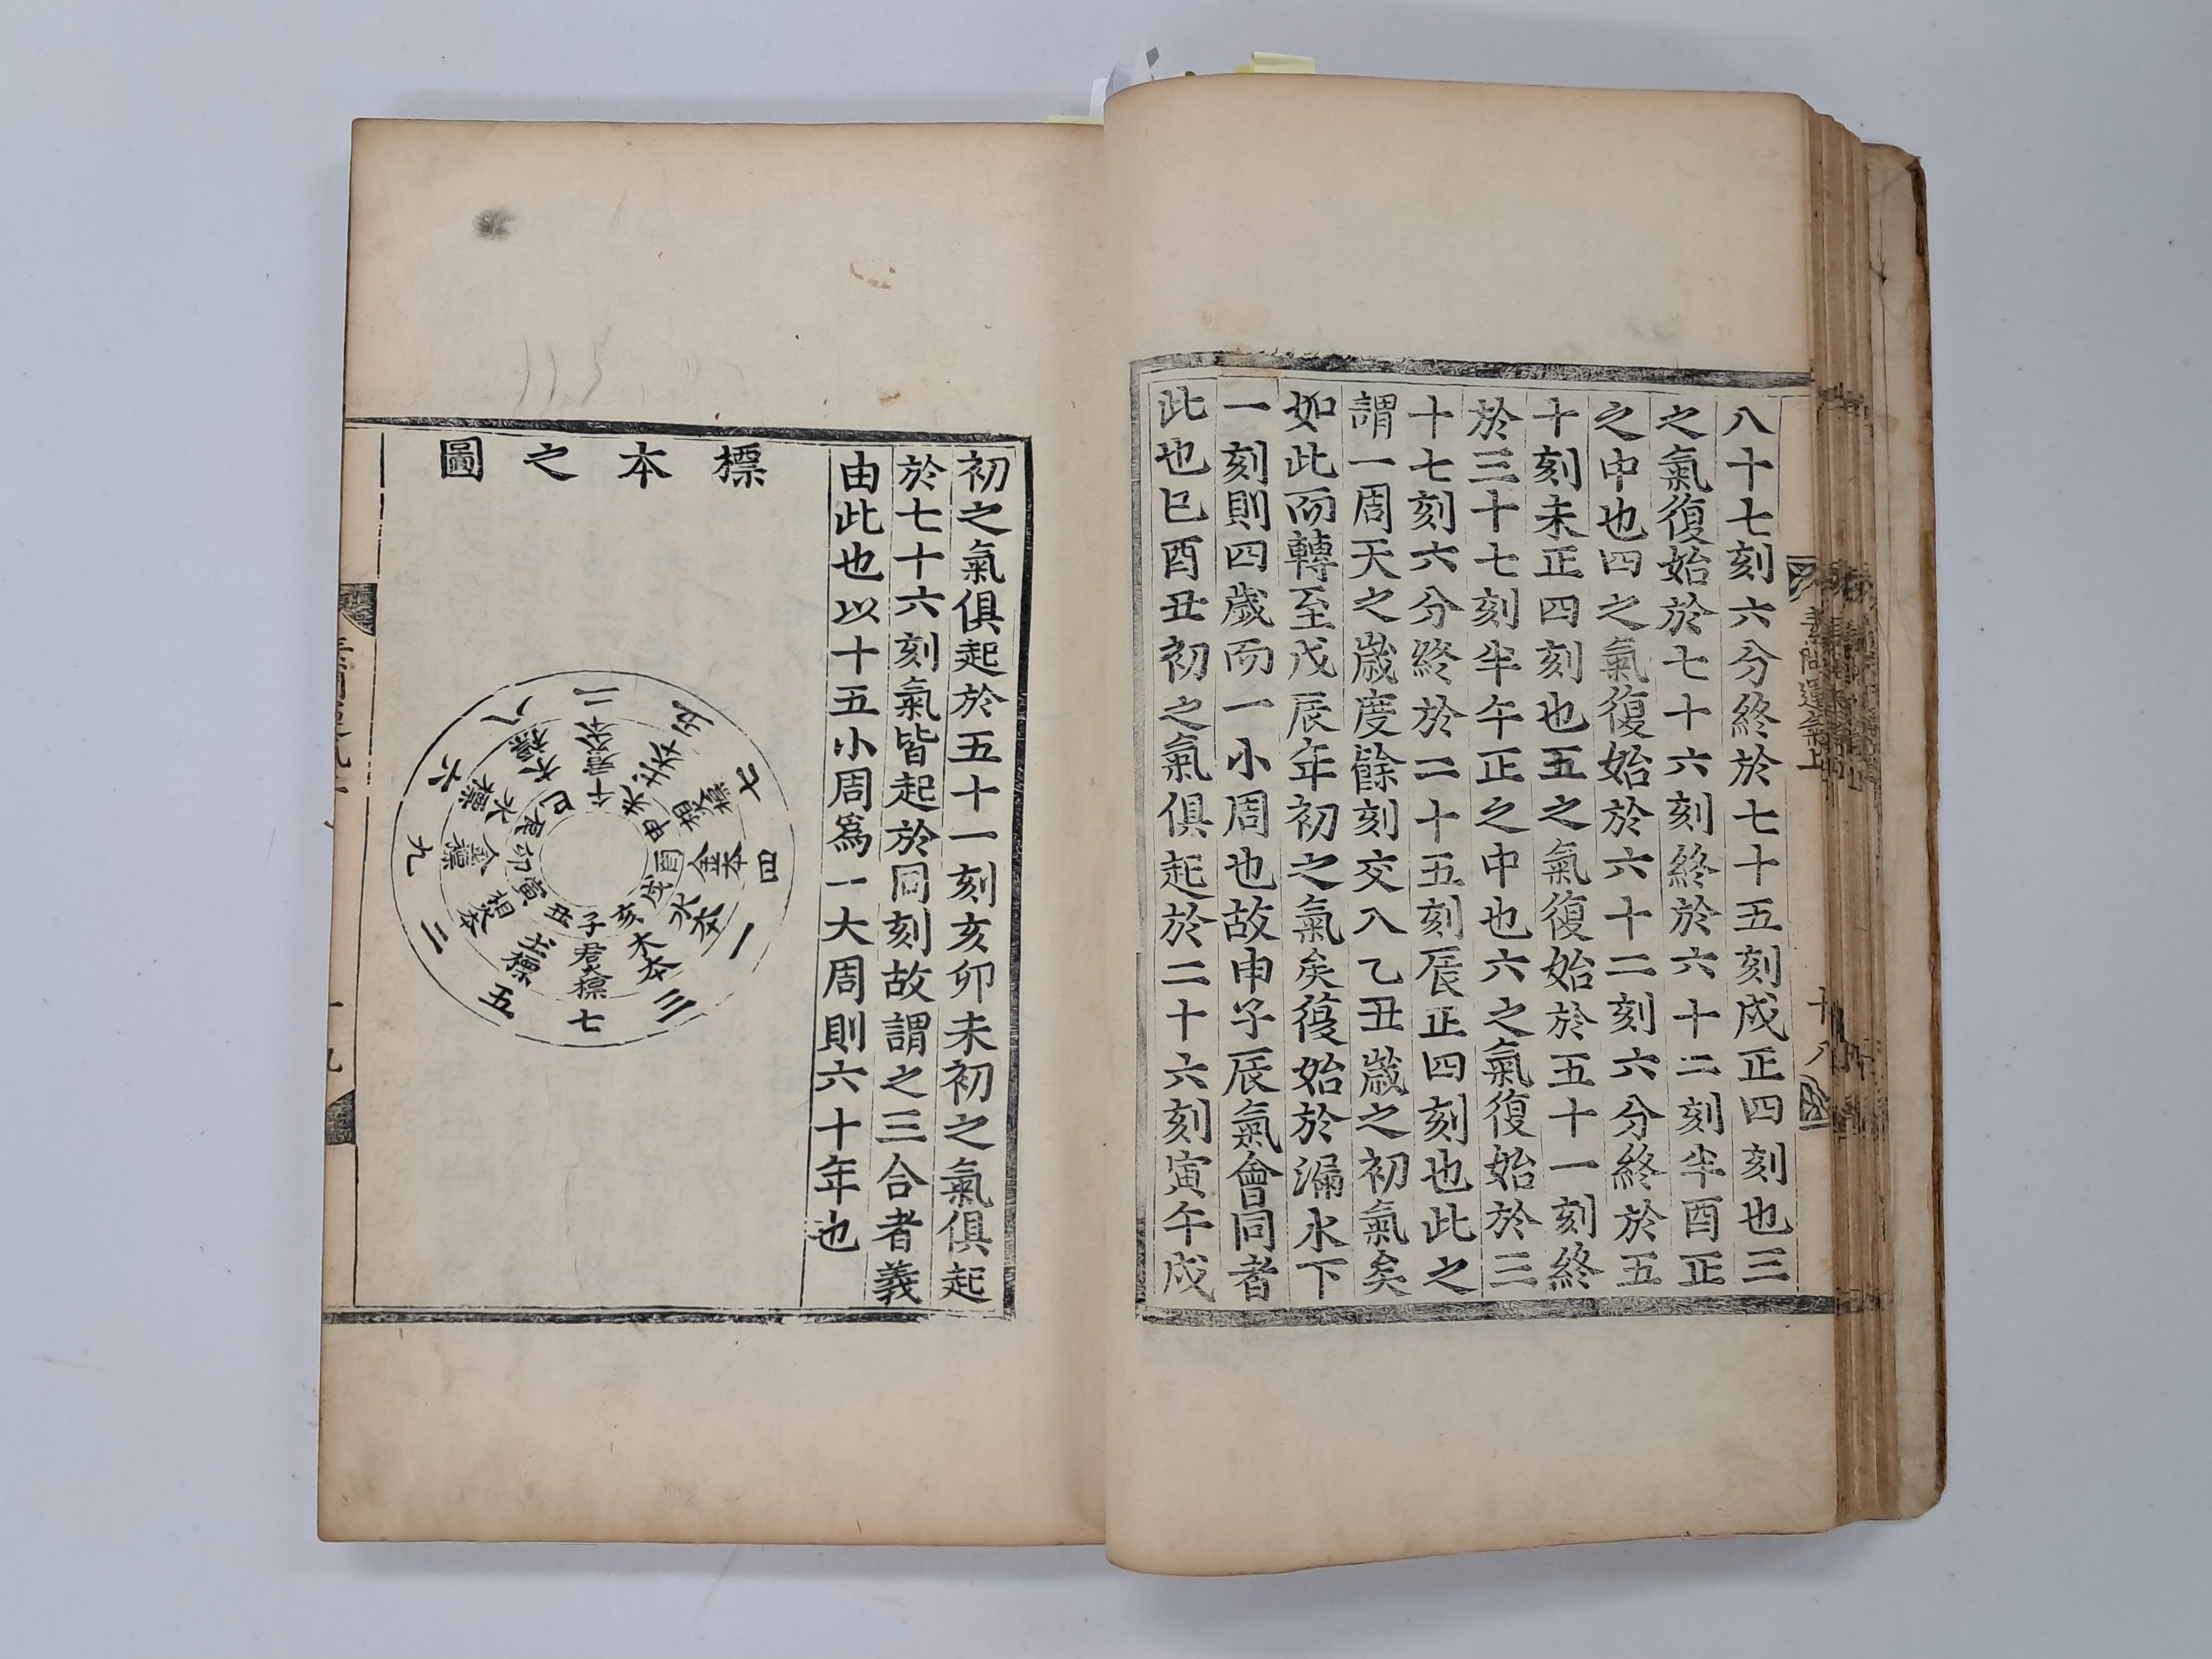 八十七刻六分終於七十五刻戌正四刻也三
之氣復始於七十六刻終於六十二刻半酉正
之中也四之氣復始於六十二刻六分終於五
十刻未正四刻也五之氣復始於五十一刻終
於三十七刻半午正之中也六之氣復始於三
十七刻六分終於二十五刻辰正四刻也此之
謂一周天之歲度餘刻交入乙丑歲之初氣矣
如此而轉至戊辰年初之氣矣復始於漏水下
一刻則四歲而一小周也故申子辰氣會同者
此也巳酉丑初之氣俱起於二十六刻寅午戌
素問運氣上
十八
初之氣俱起於五十一刻亥卯未初之氣俱起
於七十六刻氣皆起於同刻故謂之三合者義
由此也以十五小周爲一大周則六十年也
標本之圖
二 五 七 四 一 三 七 五 二 九 六 八
君火本 土本 相火標 金本 水本 木本 君火標 土標 相火本 金標 水標 木標
午 未 申 酉 戌 亥 子 丑 寅 卯 辰 巳